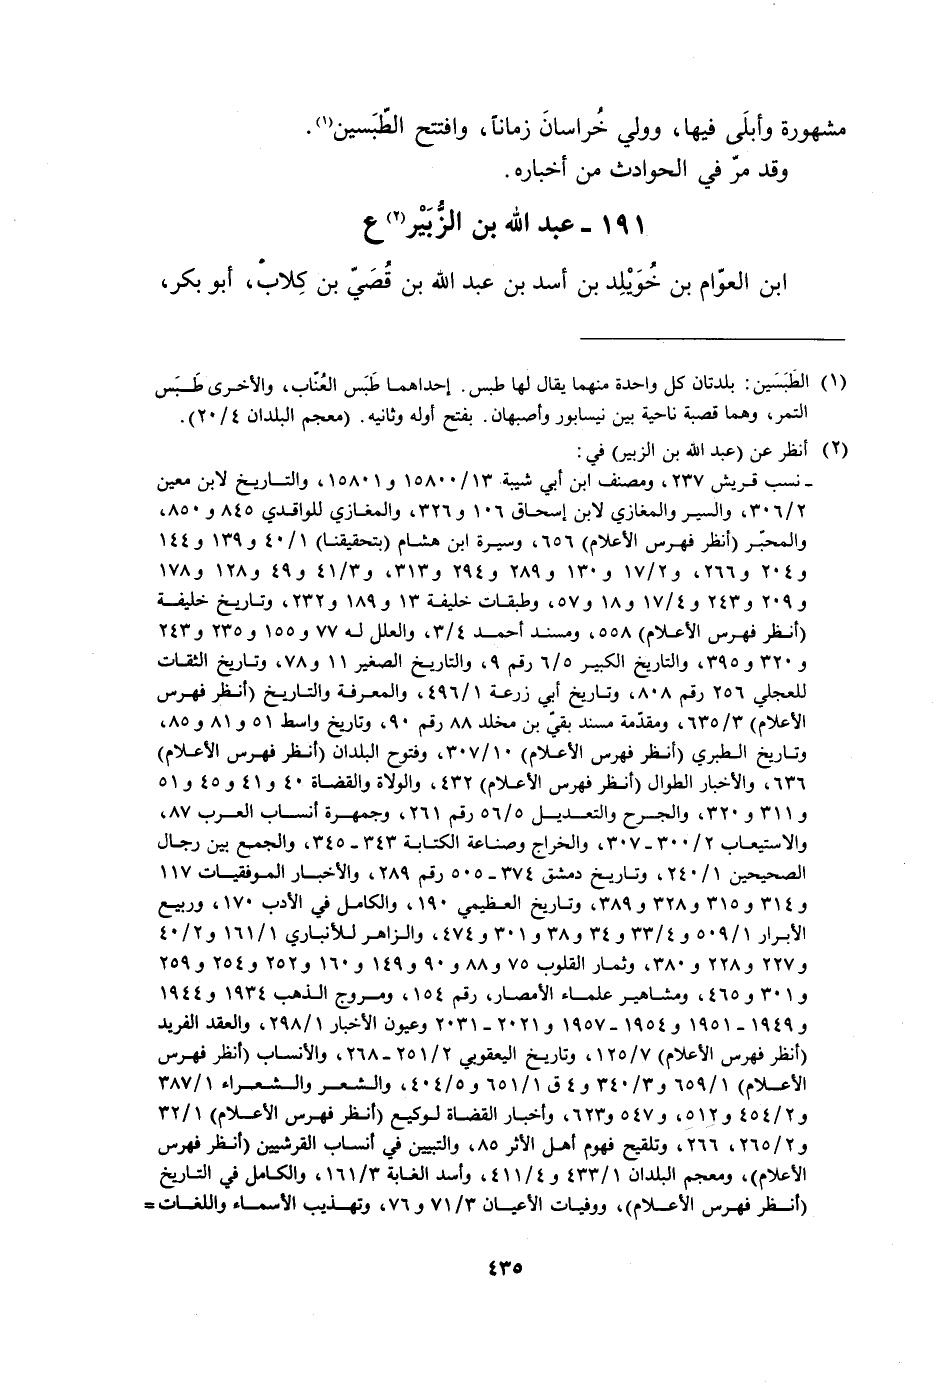 مشهورة وأبلَى فيها، وولي خُراسانَ زماناً، وافتتح الطَّبَسين(١).
وقد مرّ في الحوادث من أخباره.
١٩١ ـ عبد الله بن الزُّبَيْر(٢) ع
ابن العوّام بن خُوَيْلِد بن أسد بن عبد الله بن قُصَيّ بن كِلاب، أبو بكر،
(١) الطَبَسَين: بلدتان كل واحدة منهما يقال لها طبس. إحداهما طَبَس العُنّاب، والأخرى طَبَس
التمر، وهما قصبة ناحية بين نيسابور وأصبهان. بفتح أوله وثانيه. (معجم البلدان ٢٠/٤).
(٢) أنظر عن (عبد الله بن الزبير) في:
ـ نسب قريش ٢٣٧، ومصنف ابن أبي شيبة ١٥٨٠٠/١٣ و١٥٨٠١، والتاريخ لابن معين
٣٠٦/٢، والسير والمغازي لابن إسحاق ١٠٦ و٣٢٦، والمغازي للواقدي ٨٤٥ و٨٥٠،
والمحبّر (أنظر فهرس الأعلام) ٦٥٦، وسيرة ابن هشام (بتحقيقنا) ٤٠/١ و١٣٩ و١٤٤
و٢٠٤ و٢٦٦، و١٧/٢ و١٣٠ و٢٨٩ و٢٩٤ و٣١٣، و٤١/٣ و٤٩ و١٢٨ و١٧٨
و٢٠٩ و٢٤٣ و١٧/٤ و١٨ و٥٧، وطبقات خليفة ١٣ و١٨٩ و٢٣٢، وتاريخ خليفة
(أنظر فهرس الأعلام) ٥٥٨، ومسند أحمد ٣/٤، والعلل له ٧٧ و١٥٥ و٢٣٥ و٢٤٣
و٣٢٠ و٣٩٥، والتاريخ الكبير ٦/٥ رقم ٩، والتاريخ الصغير ١١ و٧٨، وتاريخ الثقات
للعجلي ٢٥٦ رقم ٨٠٨، وتاريخ أبي زرعة ٤٩٦/١، والمعرفة والتاريخ (أنظر فهرس
الأعلام) ٦٣٥/٣، ومقدّمة مسند بقيّ بن مخلد ٨٨ رقم ٩٠، وتاريخ واسط ٥١ و٨١ و٨٥،
وتاريخ الطبري (أنظر فهرس الأعلام) ٣٠٧/١٠، وفتوح البلدان (أنظر فهرس الأعلام)
٦٣٦، والأخبار الطوال (أنظر فهرس الأعلام) ٤٣٢، والولاة والقضاة ٤٠ و٤١ و٤٥ و٥١
و٣١١ و٣٢٠، والجرح والتعديل ٥٦/٥ رقم ٢٦١، وجمهرة أنساب العرب ٨٧،
والاستيعاب ٣٠٠/٢ ـ ٣٠٧، والخراج وصناعة الكتابة ٣٤٣ ـ ٣٤٥، والجمع بين رجال
الصحيحين ٢٤٠/١، وتاريخ دمشق ٣٧٤ ـ ٥٠٥ رقم ٢٨٩، والأخبار الموفقيات ١١٧
و٣١٤ و٣١٥ و٣٢٨ و٣٨٩، وتاريخ العظيمي ١٩٠، والكامل في الأدب ١٧٠، وربيع
الأبرار ٥٠٩/١ و٣٣/٤ و٣٤ و٣٨ و٣٠١ و٤٧٤، والزاهر للأنباري ١٦١/١ و٤٠/٢
و٢٢٧ و٢٢٨ و٣٨٠، وثمار القلوب ٧٥ و٨٨ و٩٠ و١٤٩ و١٦٠ و٢٥٢ و٢٥٤ و٢٥٩
و٣٠١ و٤٦٥، ومشاهير علماء الأمصار، رقم ١٥٤، ومروج الذهب ١٩٣٤ و١٩٤٤
و١٩٤٩ ـ ١٩٥١ و١٩٥٤ ـ ١٩٥٧ و٢٠٢١ ـ ٢٠٣١ وعيون الأخبار ٢٩٨/١، والعقد الفريد
(أنظر فهرس الأعلام) ١٢٥/٧، وتاريخ اليعقوبي ٢٥١/٢ ـ ٢٦٨، والأنساب (أنظر فهرس
الأعلام) ٦٥٩/١ و٣٤٠/٣ و٤ ق ٦٥١/١ و٤٠٤/٥، والشعر والشعراء ٣٨٧/١
و٤٥٤/٢ و٥١٢، و٥٤٧ و٦٢٣، وأخبار القضاة لوكيع (أنظر فهرس الأعلام) ٣٢/١
و٢٦٥/٢، ٢٦٦، وتلقيح فهوم أهل الأثر ٨٥، والتبيين في أنساب القرشيين (أنظر فهرس
الأعلام)، ومعجم البلدان ٤٣٣/١ و٤١١/٤، وأسد الغابة ١٦١/٣، والكامل في التاريخ
(أنظر فهرس الأعلام)، ووفيات الأعيان ٧١/٣ و٧٦، وتهذيب الأسماء واللغات =
٤٣٥